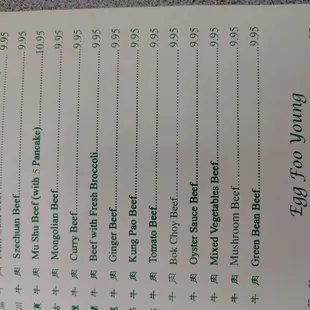 9.95
川 牛 肉 Szechuan Beef 9.95
牛 肉 Mu Shu Beef (with 5 Pancake) 10.95
牛 肉 Mongolian Beef 9.95
牛 肉 Curry Beef 9.95
牛 肉 Beef with Fresh Broccoli 9.95
牛 肉 Ginger Beef 9.95
牛 肉 Kung Pao Beef 9.95
牛 肉 Tomato Beef 9.95
牛 肉 Bok Choy Beef 9.95
牛 肉 Oyster Sauce Beef 9.95
牛 肉 Mixed Vegetables Beef 9.95
牛 肉 Mushroom Beef 9.95
牛 肉 Green Bean Beef 9.95
Egg Foo Young